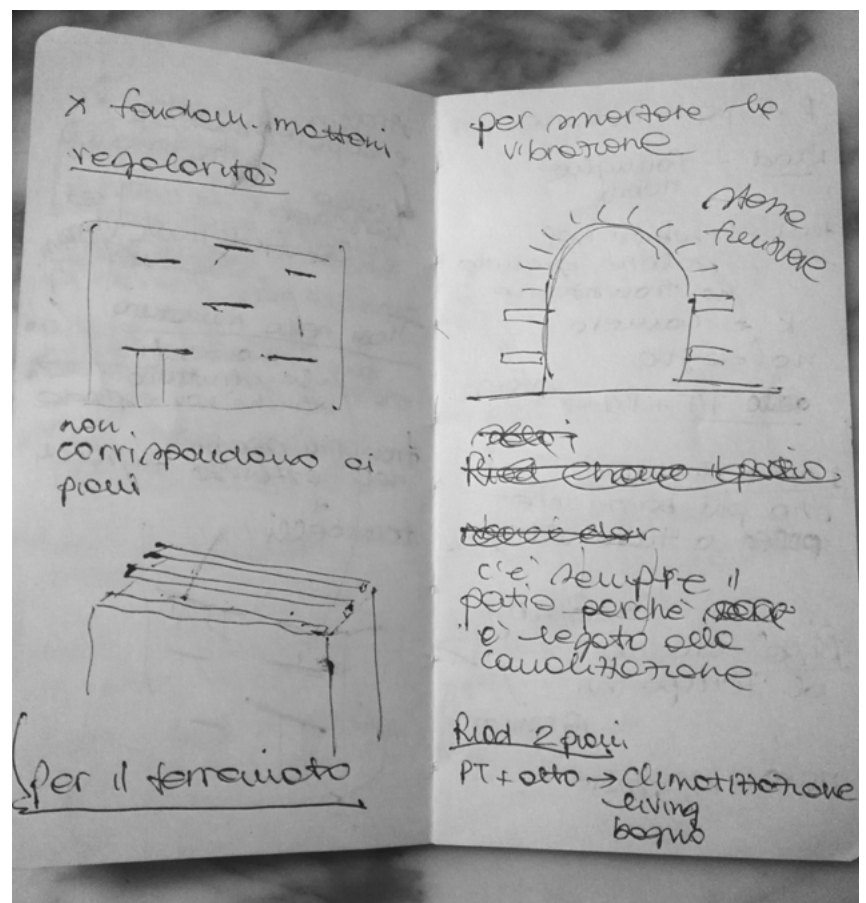 x fondam. mattoni
regolarità
non
corrispondono ai
piani
per il terrazzato
per smorzare le
vibrazione
stesse
funzione
Riad erano il patio
c'è sempre il
patio perchè
è legato alla
canalizzazione
Riad 2 piani
PT + alto → Climatizzazione
living
bagno